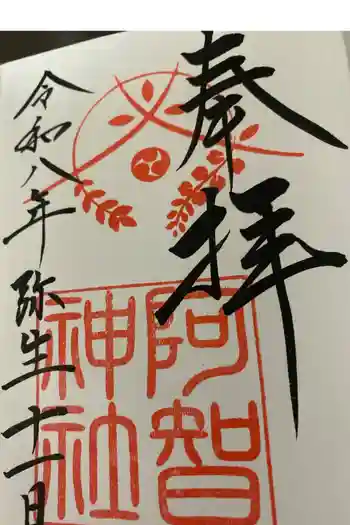 奉拝
阿智
神社
令和八年弥生十一日